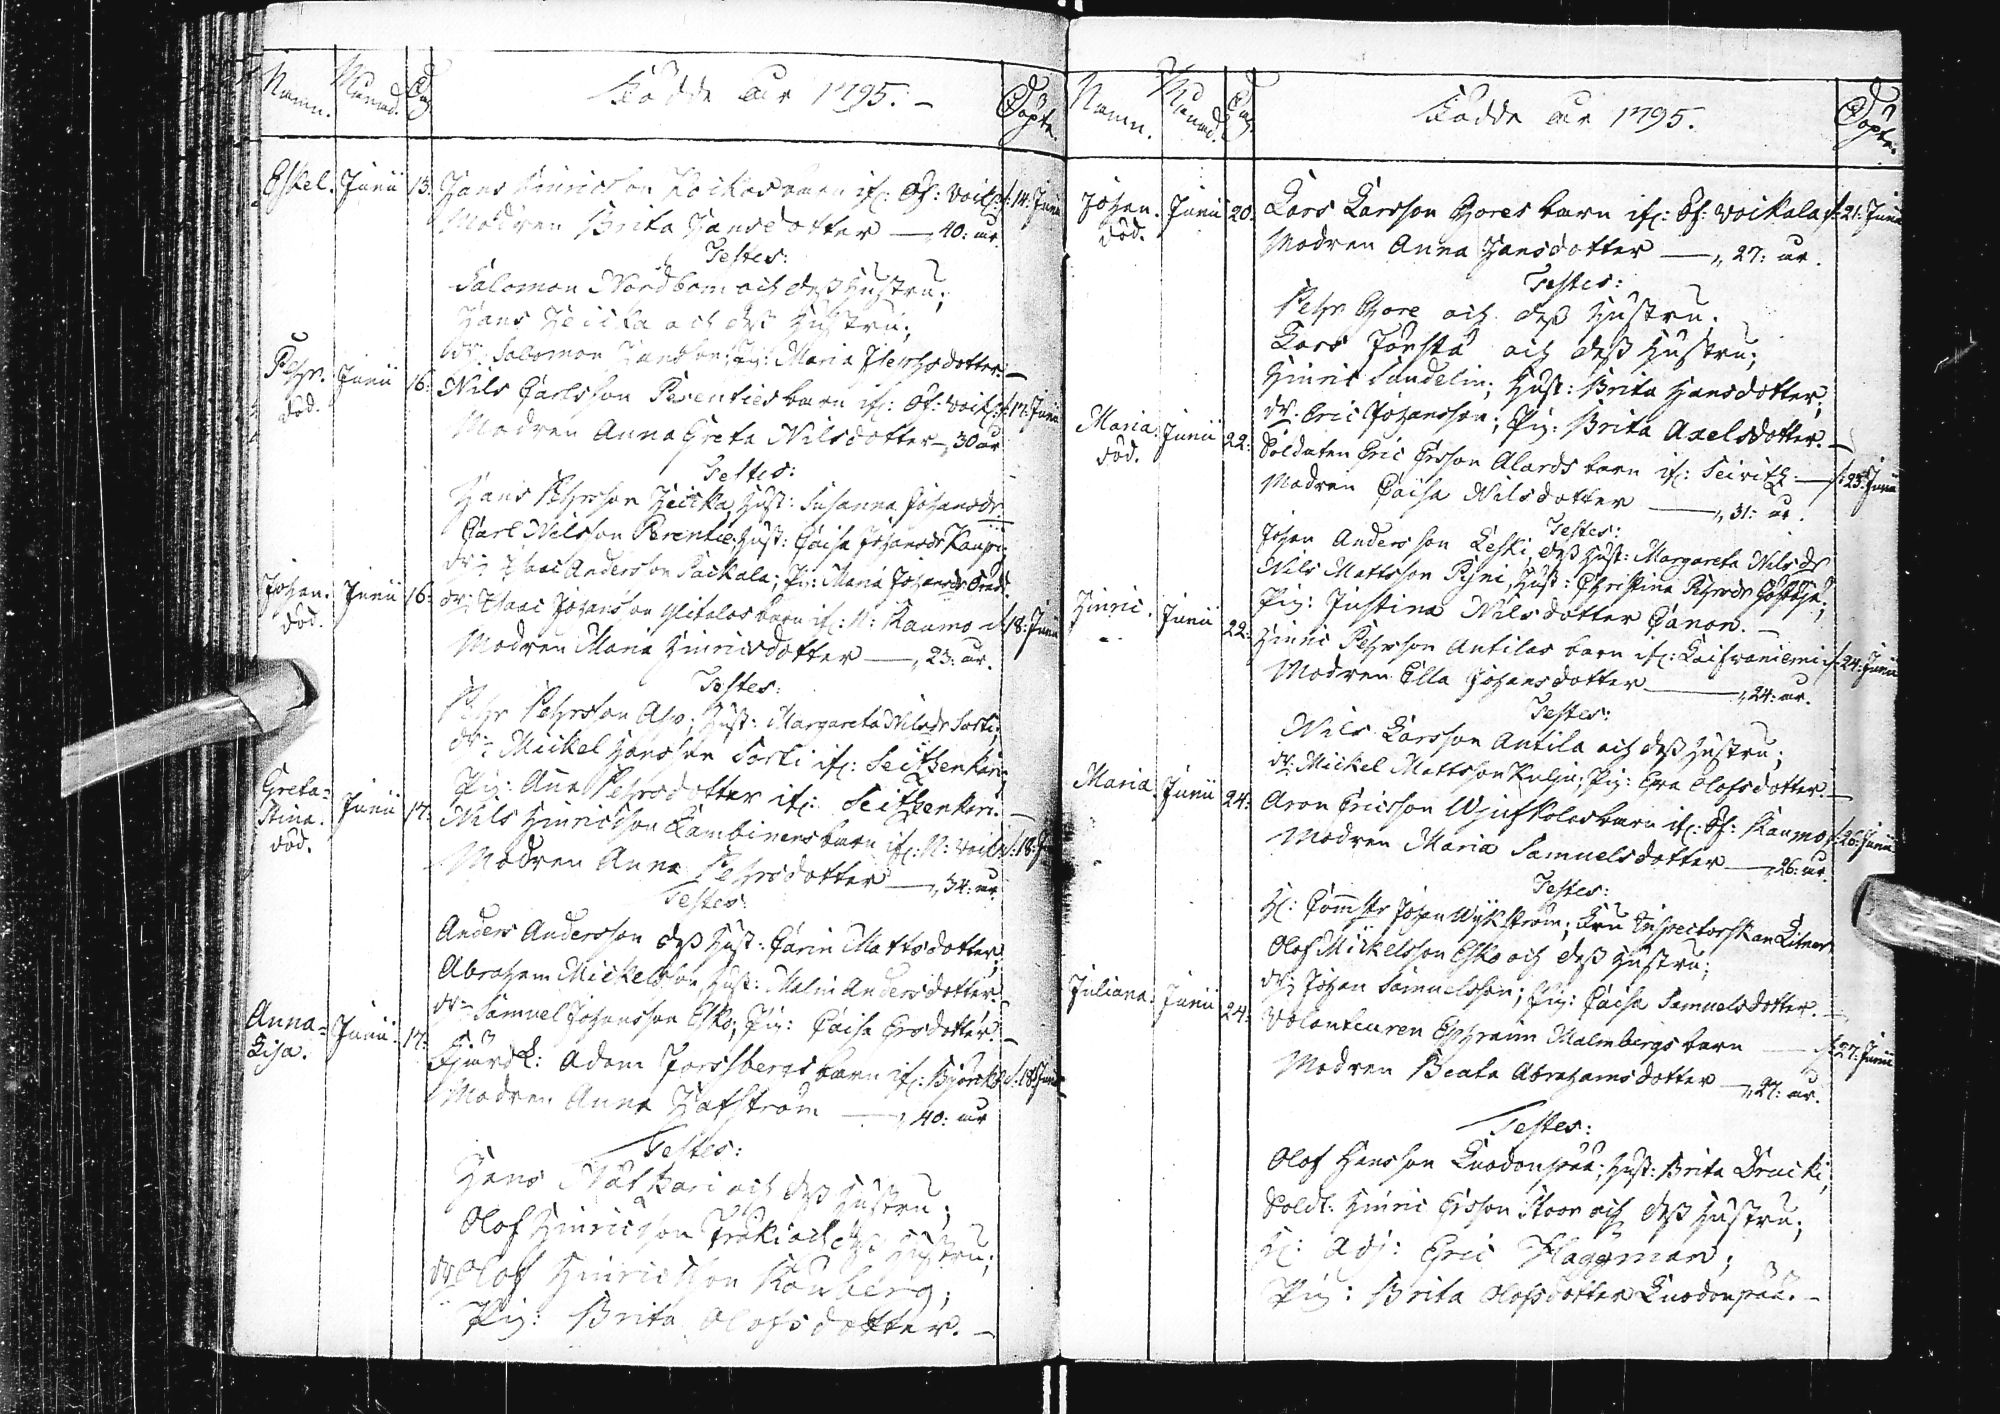 Namn. Månad. Dag Födde År 1795. Döpte.
Eskel. Junii 13. Hans Hinricsson barn if: Of: Voik: d: 14: Junii
Modren Brita Hansdotter — „ 40: år.
Testes:
Salomon Nordbom och dess Hustru;
Hans Heicka och dess Hustru;
Salomon Hansson; Pig: Maria dotter. —
Pehr. Junii 16. Nils Carlsson Perenties barn if: Of: Voik: d: 17: Junii
död.
Modren Anna Greta Nilsdotter — „ 30 år
Testes:
Hans Pehrsson Heicka, Hust: Susanna Johansdr.
Carl Nilsson Perentie. Hust: Caisa Johansdr Kaupi;
dr: Isaac Andersson Packala; Pig: Maria Johansdr
Johan. Junii 16: dr: Isaac Johansson barn if: N: Raumo d: 18: Junii
död.
Modren Maria Hinricsdotter — „ 23: år.
Testes:
Pehr Pehrsson Alp; Hust: Margareta Nilsdr Torti;
dr: Mickel Hansson Torti if: Seitzenkari;
Pig: Anna Pehrsdotter if: Seitzenkari. —
Greta= Stina. Junii 17: Nils Hinricsson Lambinens barn if: N: Voik: d: 18: Ju
död.
Modren Anna Pehrsdotter — „ 34: år
Testes:
Anders Andersson dess Hust: Carin Mattsdotter;
Abraham Mickelsson, Hust: Malin Andersdotter.
dr: Samuel Johansson Esko; Pig: Caisa Ersdotter. —
Anna= Lisa. Junii. 17: Adam Forssbergs barn if: Björck: d: 18: Junii
Modren Anna Hafström — „ 40: år
Testes:
Hans Nätkari och dess Hustru;
Olof Hinricsson och dess Hustru;
dr: Olof Hinricsson Rönberg;
Pig: Brita Olofsdotter. —
Namn. Månad. Dag. Födde År 1795. Döpte.
Johan. Junii 20: Lars Larsson Gores barn if: Of: Voikala d: 21: Junii
död.
Modren Anna Hansdotter — „ 27: år.
Testes:
Pehr Gore och dess Hustru.
Lars Jönsta och dess Hustru;
Hinric Sundelin; Hust: Brita Hansdotter;
dr. Eric Johansson; Pig: Brita Axelsdotter. —
Maria. Junii 22: Soldaten Eric Ersson Alards barn if: — d: 23: Junii
död.
Modren Caisa Nilsdotter — „ 31: år.
Testes:
Johan Andersson Leski, dess Hust: Margareta Nilsdr
Nils Mattsson Pijni, Hust: Christina Pehrsdr
Pig: Justina Nilsdotter Canon. —
Hinric. Junii 22: Hinric Pehrsson Antilas barn if: Laisvaniemi d: 24: Junii
Modren Ella Johansdotter — „ 24: år.
Testes:
Nils Larsson Antila och dess Hustru;
dr: Mickel Mattsson Kulju; Pig: Eva Olofsdotter. —
Maria. Junii 24: Aron Ericsson barn if: Of: Raumo d: 26: Junii
Modren Maria Samuelsdotter — „ 26: år.
Testes:
H: Johan Wijkström; Fru Inspectorskan Litner
Olof Mickelsson Esko och dess Hustru;
dr: Johan Samuelsson; Pig: Caisa Samuelsdotter. —
Juliana. Junii 24: Volonteuren Ephraim Malmbergs barn — d: 27: Junii
Modren Beata Abrahamsdotter — „ 27: år.
Testes:
Olof Hansson Luodonpää; Hust: Brita Dracki;
Soldt: Hinric Ersson Stoor och dess Hustru;
H: Adj: Eric Häggman;
Pig: Brita Olofsdotter Luodonpää. —